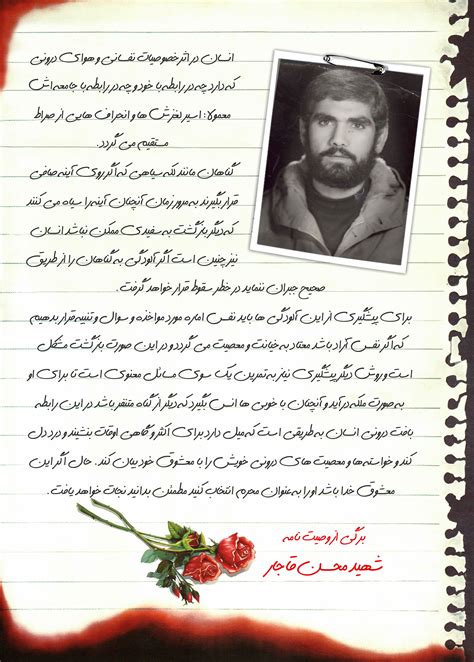 انسان در اثر خصوصیات نفسانی و هوای درونی
که دارد چه در رابطه با خود و چه در رابطه با جامعه اش
معمولا: اسیر لغزش ها و انحراف هایی از صراط
مستقیم می گردد.
گناهان مانند لکه سیاهی که اگر روی آینه صافی
قرار بگیرند به مرور زمان آنچنان آینه را سیاه می کنند
که دیگر بازگشت به سفیدی ممکن نباشد انسان
نیز چنین است اگر آلودگی به گناهان را از طریق
صحیح جبران ننماید در خطر سقوط قرار خواهد گرفت.
برای پیشگیری از این آلودگی ها باید نفس اماره مورد مواخذه و سوال و تنبیه قرار بدهیم
که اگر نفس آزاد باشد معتاد به خیانت و معصیت می گردد و در این صورت بازگشت مشکل
است و روش دیگر پیشگیری نیاز به تمرین یک سوی مسائل معنوی است تا برای او
به صورت ملکه در آید و آنچنان با خوبی ها انس بگیرد که دیگر از گناه متنفر باشد در این رابطه
بافت درونی انسان به طریقی است که میل دارد برای اکثر و گاهی اوقات بنشیند و درد دل
کند و خواسته ها و معصیت های درونی خویش را با معشوق خود بیان کند. حال اگر این
معشوق خدا باشد او را به عنوان محرم انتخاب کنید مطمئن بدانید نجات خواهد یافت.
برگی از وصیت نامه
شهید محسن قاجار